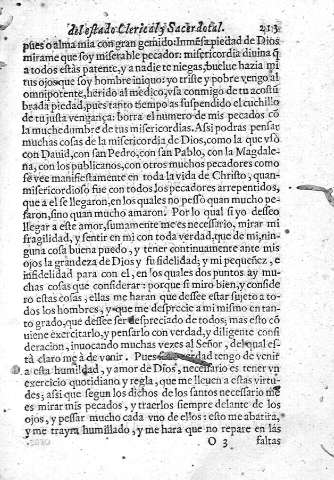 del estado Clerical, y Sacerdotal. 213
pues o alma mia con gran gemido: Inmẽsa piedad de Dios
mirame que soy miserable pecador: misericordia diuina q̃
a todos estàs patente, y a nadie te niegas, buelue hazia mi
tus ojos que soy hombre iniquo: yo triste y pobre vengo al
omnipotente, herido al medico, vsa conmigo de tu acostũ
brada piedad, pues tanto tiempo as suspendido el cuchillo
de tu justa vengança: borra el numero de mis pecados cõ
la muchedumbre de tus misericordias. Assi podras pensar
muchas cosas de la misericordia de Dios, como la que vsò
con Dauid, con san Pedro, con san Pablo, con la Magdale-
na, con los publicanos, con otros muchos pecadores como
se vee manifiestamente en toda la vida de Christo, quan-
misericordioso fue con todos los pecadores arrepentidos,
que a el se llegaron, en los quales no pessò quan mucho pe-
caron, sino quan mucho amaron. Por lo qual si yo desseo
llegar a este amor, sumamente me es necessario, mirar mi
fragilidad, y sentir en mi con toda verdad, que de mi, nin-
guna cosa buena puedo, y tener continuamente ante mis
ojos la grandeza de Dios y su fidelidad; y mi pequeñez, e
infidelidad para con el, en los quales dos puntos ay mu-
chas cosas que considerar: porque si miro bien, y conside
ro estas cosas, ellas me haran que dessee estar sujeto a to-
dos los hombres, y que me desprecie a mi mismo en tan-
to grado, que dessee ser despreciado de todos; mas esto cõ
uiene exercitarlo, y pensarlo con verdad, y diligente consi
deracion, inuocando muchas vezes al Señor, del qual es-
tà claro me à de venir. Pues verdad tengo de venir
a esta humildad, y amor de Dios, necessario es tener vn
exercicio quotidiano y regla, que me lleuen a estas virtu-
des; assi que segun los dichos de los santos necessario me
es mirar mis pecados, y traerlos siempre delante de los
ojos, y pessar mucho cada vno de ellos: esso me abatira,
y me trayra humillado, y me hara que no repare en las
O 3 faltas